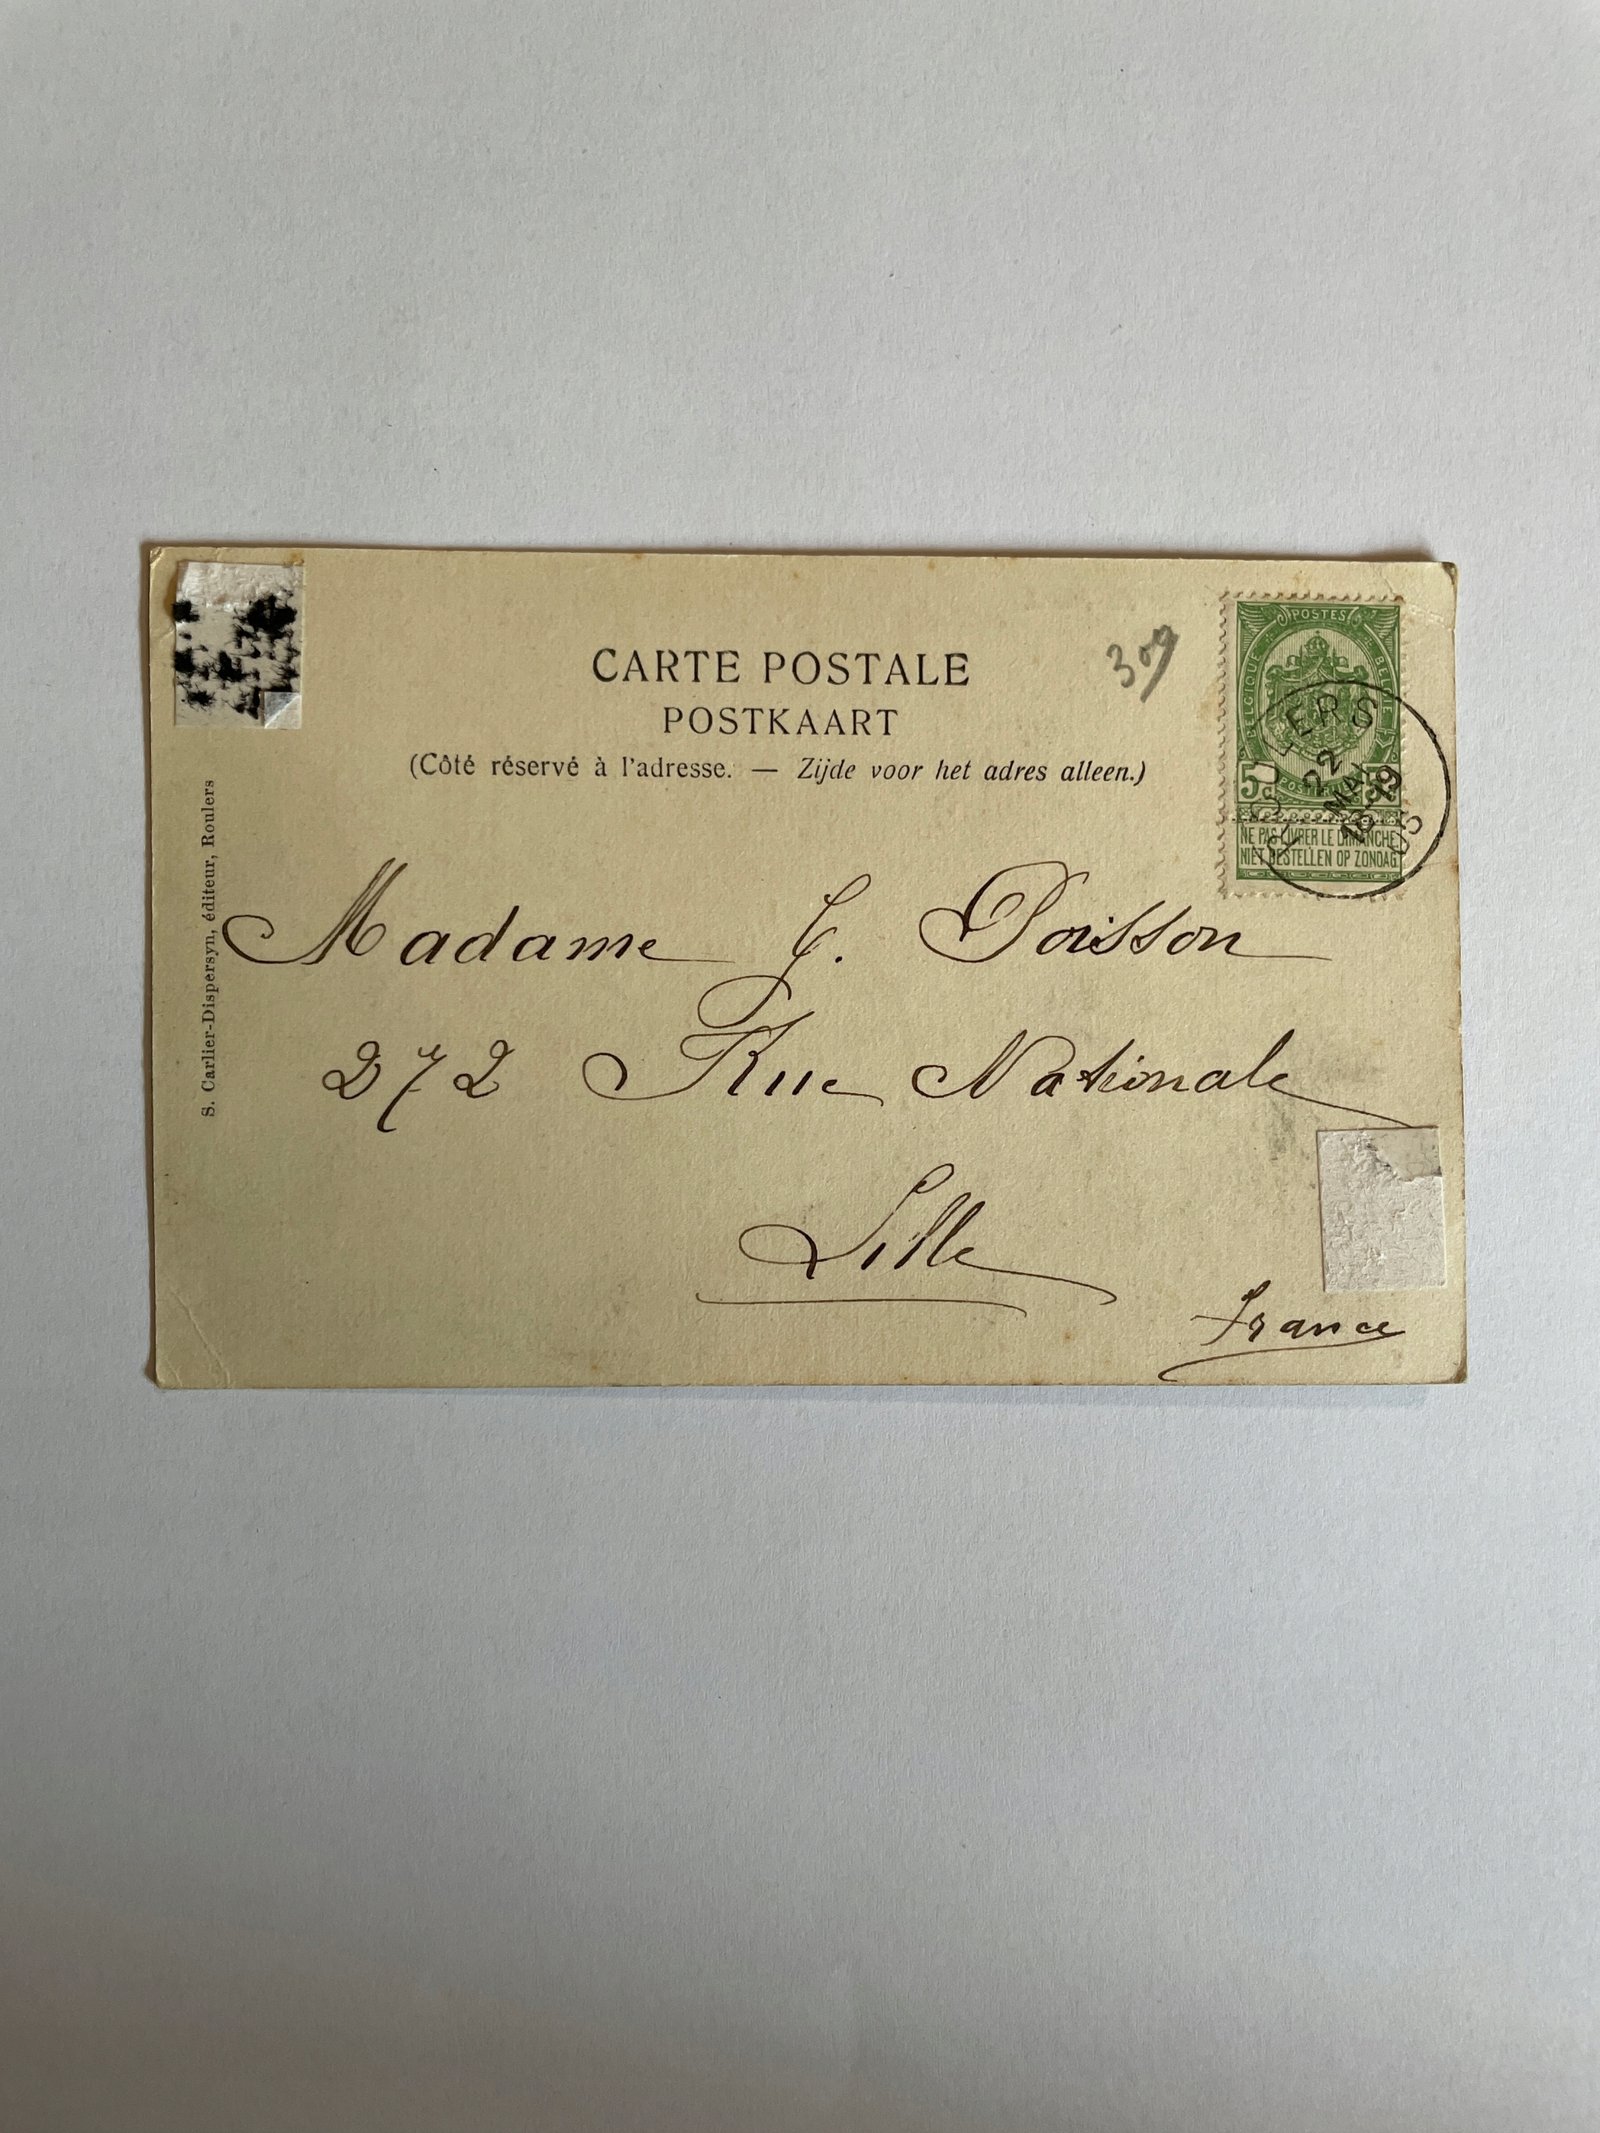 CARTE POSTALE
POSTKAART
(Côté réservé à l'adresse. — Zijde voor het adres alleen.)
309
POSTES
BELGIQUE
BELGIE
5c 5c
NE PAS LIVRER LE DIMANCHE
NIET BESTELLEN OP ZONDAG
ROULERS
22
MAI
18-19
05
S. Carlier-Dispersyn, éditeur, Roulers
Madame J. Poisson
272 Rue Nationale
Lille
France